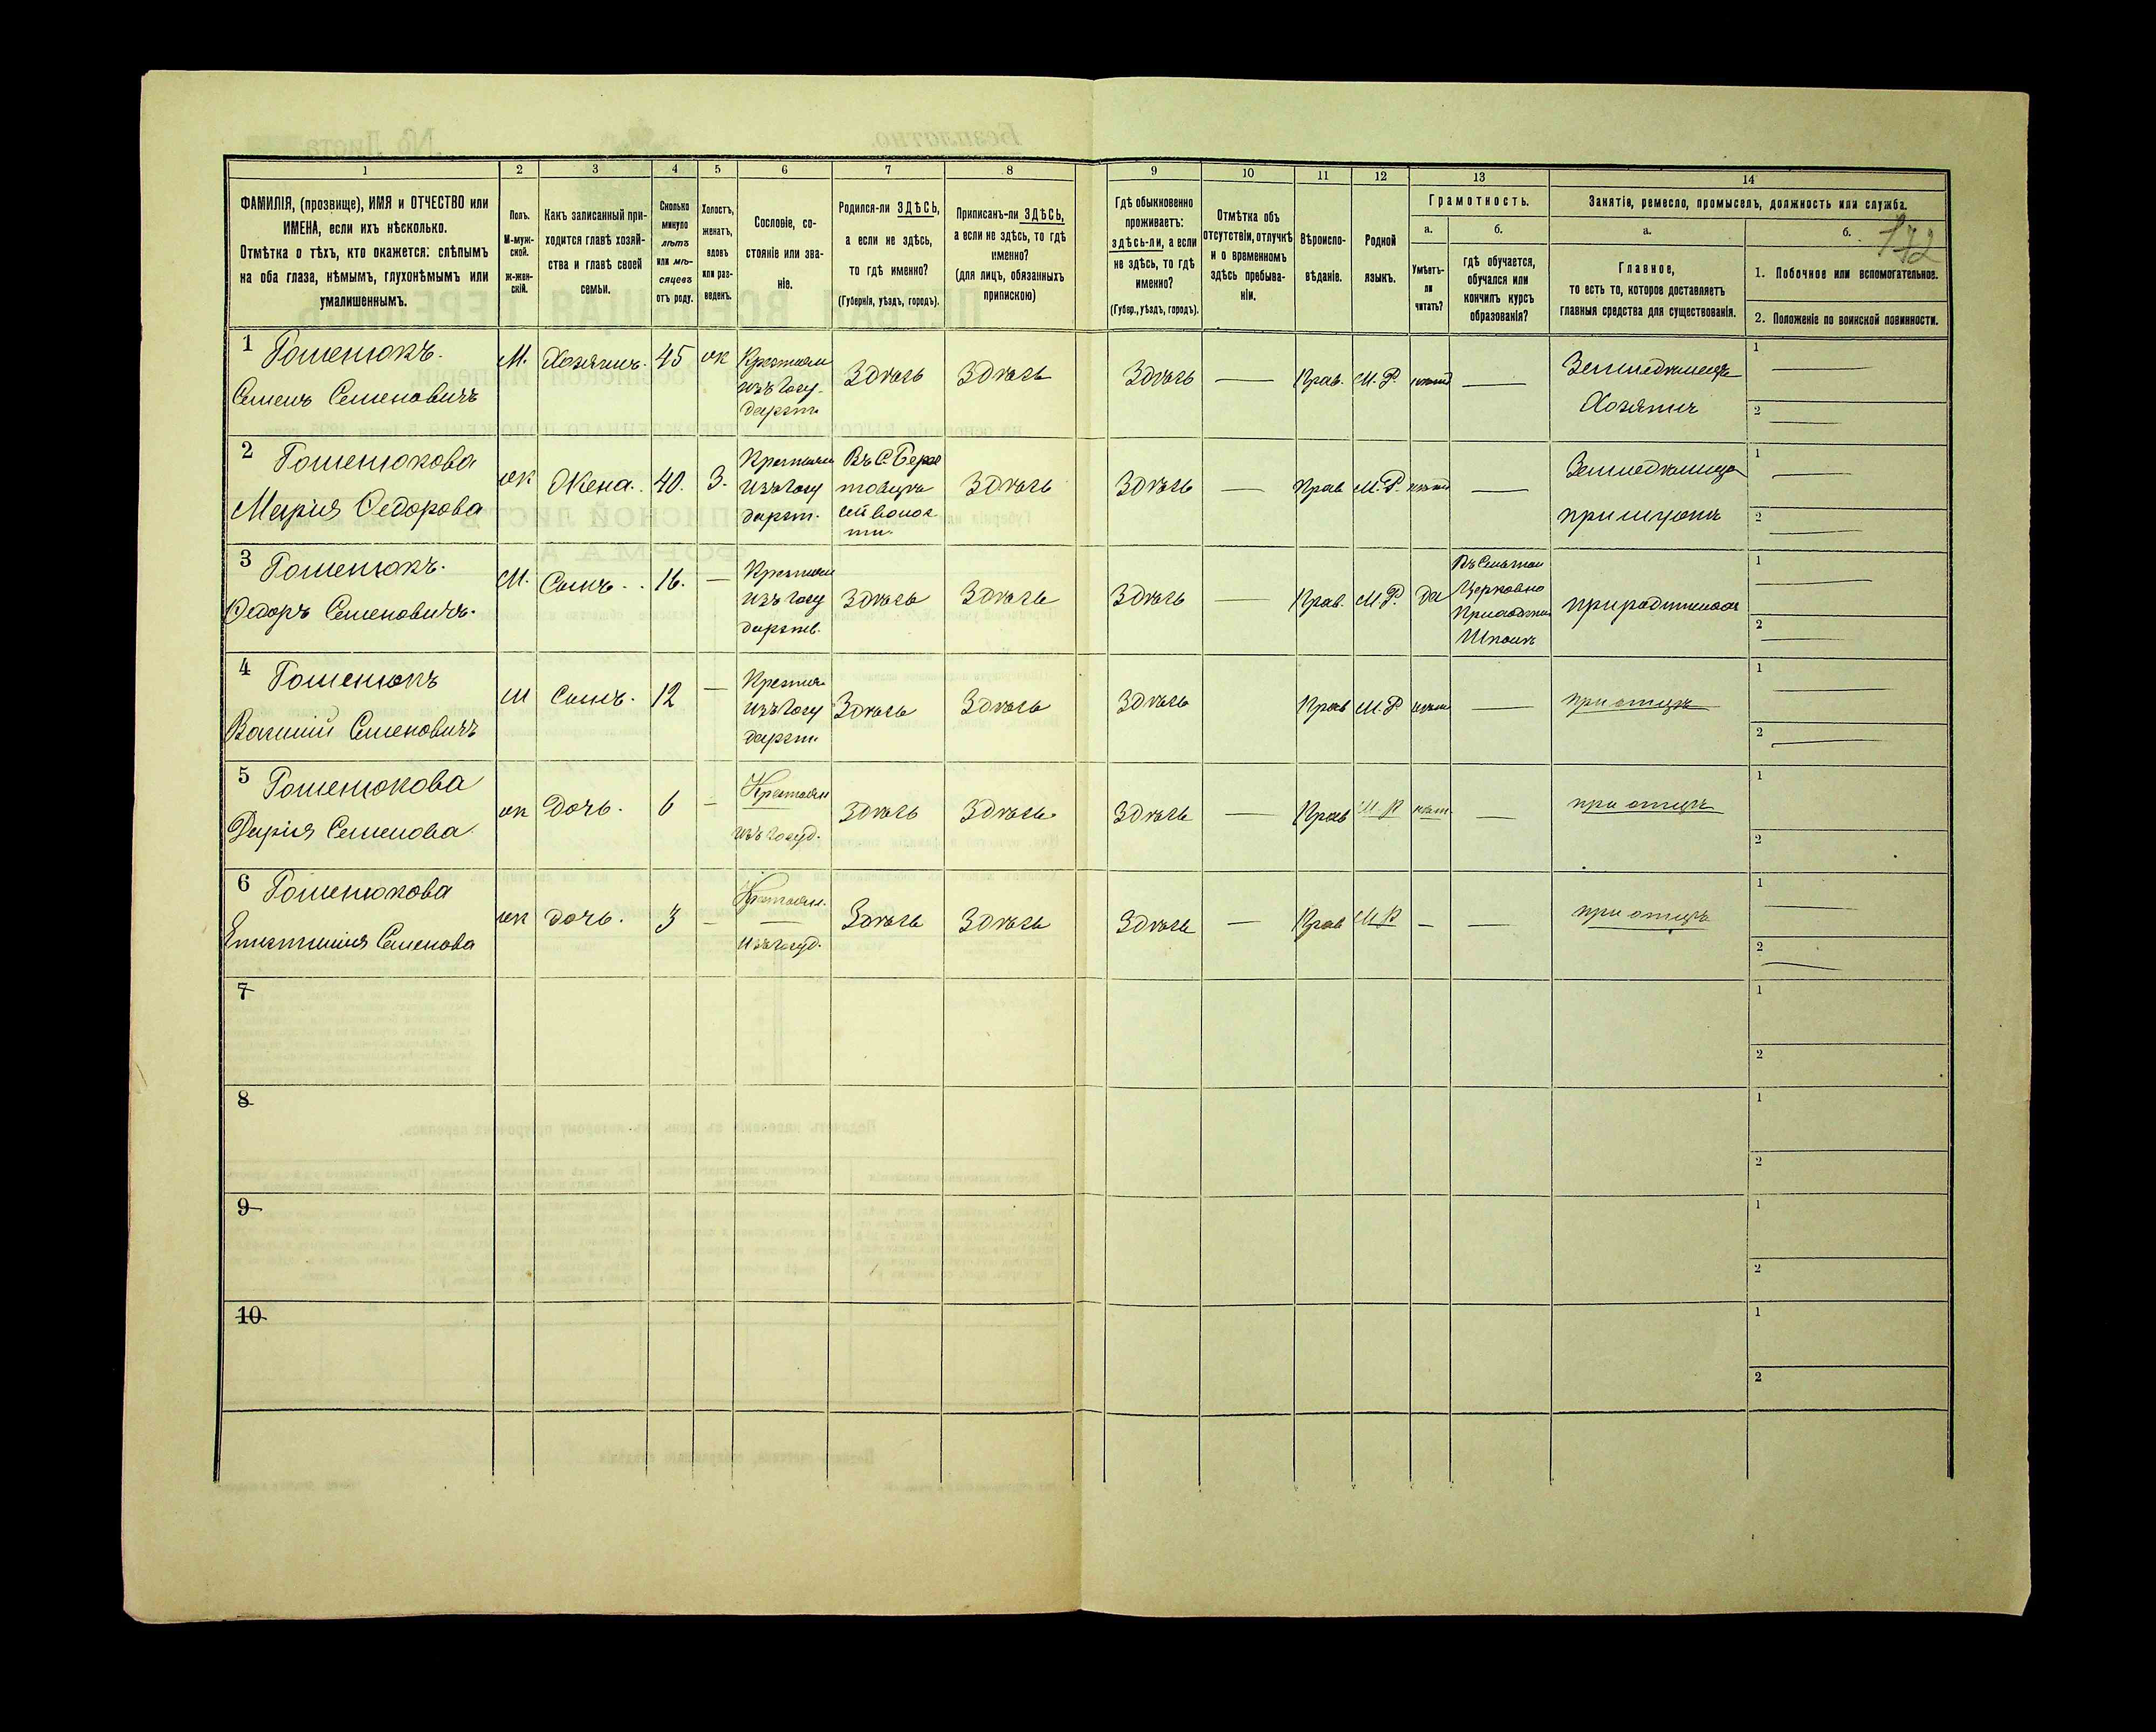 1 2 3 4 5 6 7 8 9 10 11 12 13 14
ФАМИЛІЯ, (прозвище), ИМЯ и ОТЧЕСТВО или
ИМЕНА, если ихъ нѣсколько.
Отмѣтка о тѣхъ, кто окажется: слѣпымъ
на оба глаза, нѣмымъ, глухонѣмымъ или
умалишеннымъ.
Полъ.
М-муж-
ской.
ж-жен-
скій.
Какъ записанный при-
ходится главѣ хозяй-
ства и главѣ своей
семьи.
Сколько
минуло
лѣтъ
или мѣ-
сяцевъ
отъ роду.
Холостъ,
женатъ,
вдовъ
или раз-
веденъ.
Сословіе, со-
стояніе или зва-
ніе.
Родился-ли ЗДѢСЬ,
а если не здѣсь,
то гдѣ именно?
(Губернія, уѣздъ, городъ).
Приписанъ-ли ЗДѢСЬ,
а если не здѣсь, то гдѣ
именно?
(для лицъ, обязанныхъ
припискою)
Гдѣ обыкновенно
проживаетъ:
здѣсь-ли, а если
не здѣсь, то гдѣ
именно?
(Губер., уѣздъ, городъ).
Отмѣтка объ
отсутствіи, отлучкѣ
и о временномъ
здѣсь пребыва-
ніи.
Вѣроиспо-
вѣданіе.
Родной
языкъ.
Грамотность.
а.
Умѣетъ-
ли
читать?
б.
гдѣ обучается,
обучался или
кончилъ курсъ
образованія?
Занятіе, ремесло, промыселъ, должность или служба.
а.
Главное,
то есть то, которое доставляетъ
главныя средства для существованія.
б.
172
1. Побочное или вспомогательное.
2. Положеніе по воинской повинности.
1 Гошенюкъ.
Семенъ Семеновичъ
М.
Хозяинъ.
45
ж
Крестьян
изъ Госу-
дарст.
Здѣсь
Здѣсь
Здѣсь
—
Прав.
М. Р.
—
Хозяинъ
1
2
2 Гошенюкова
Марія Федорова
ж
Жена.
40.
З.
изъ Госу
дарст.
Здѣсь
Здѣсь
—
Прав
М. Р.
—
1
2
3 Гошенюкъ.
Федоръ Семеновичъ.
М.
Сынъ.
16.
—
изъ Госу
дарств.
Здѣсь
Здѣсь
Здѣсь
—
Прав.
М. Р.
да
Церковно
Школѣ
1
2
4 Гошенюкъ
Василій Семеновичъ
М
Сынъ.
12
—
изъ Госу
дарст.
Здѣсь
Здѣсь
Здѣсь
Прав
М. Р
—
при отцѣ
1
2
5 Гошенюкова
Дарія Семенова.
ж
Дочь.
6
—
Крестьян
изъ Госуд.
Здѣсь
Здѣсь.
Здѣсь
—
Прав
М Р
нѣт
—
при отцѣ
1
2
6 Гошенюкова
Семенова
ж
дочь.
3
—
изъ Госуд.
Здѣсь
Здѣсь
Здѣсь
—
Прав
М Р
—
—
при отцѣ
1
2
7
1
2
8
1
2
9
1
2
10
1
2